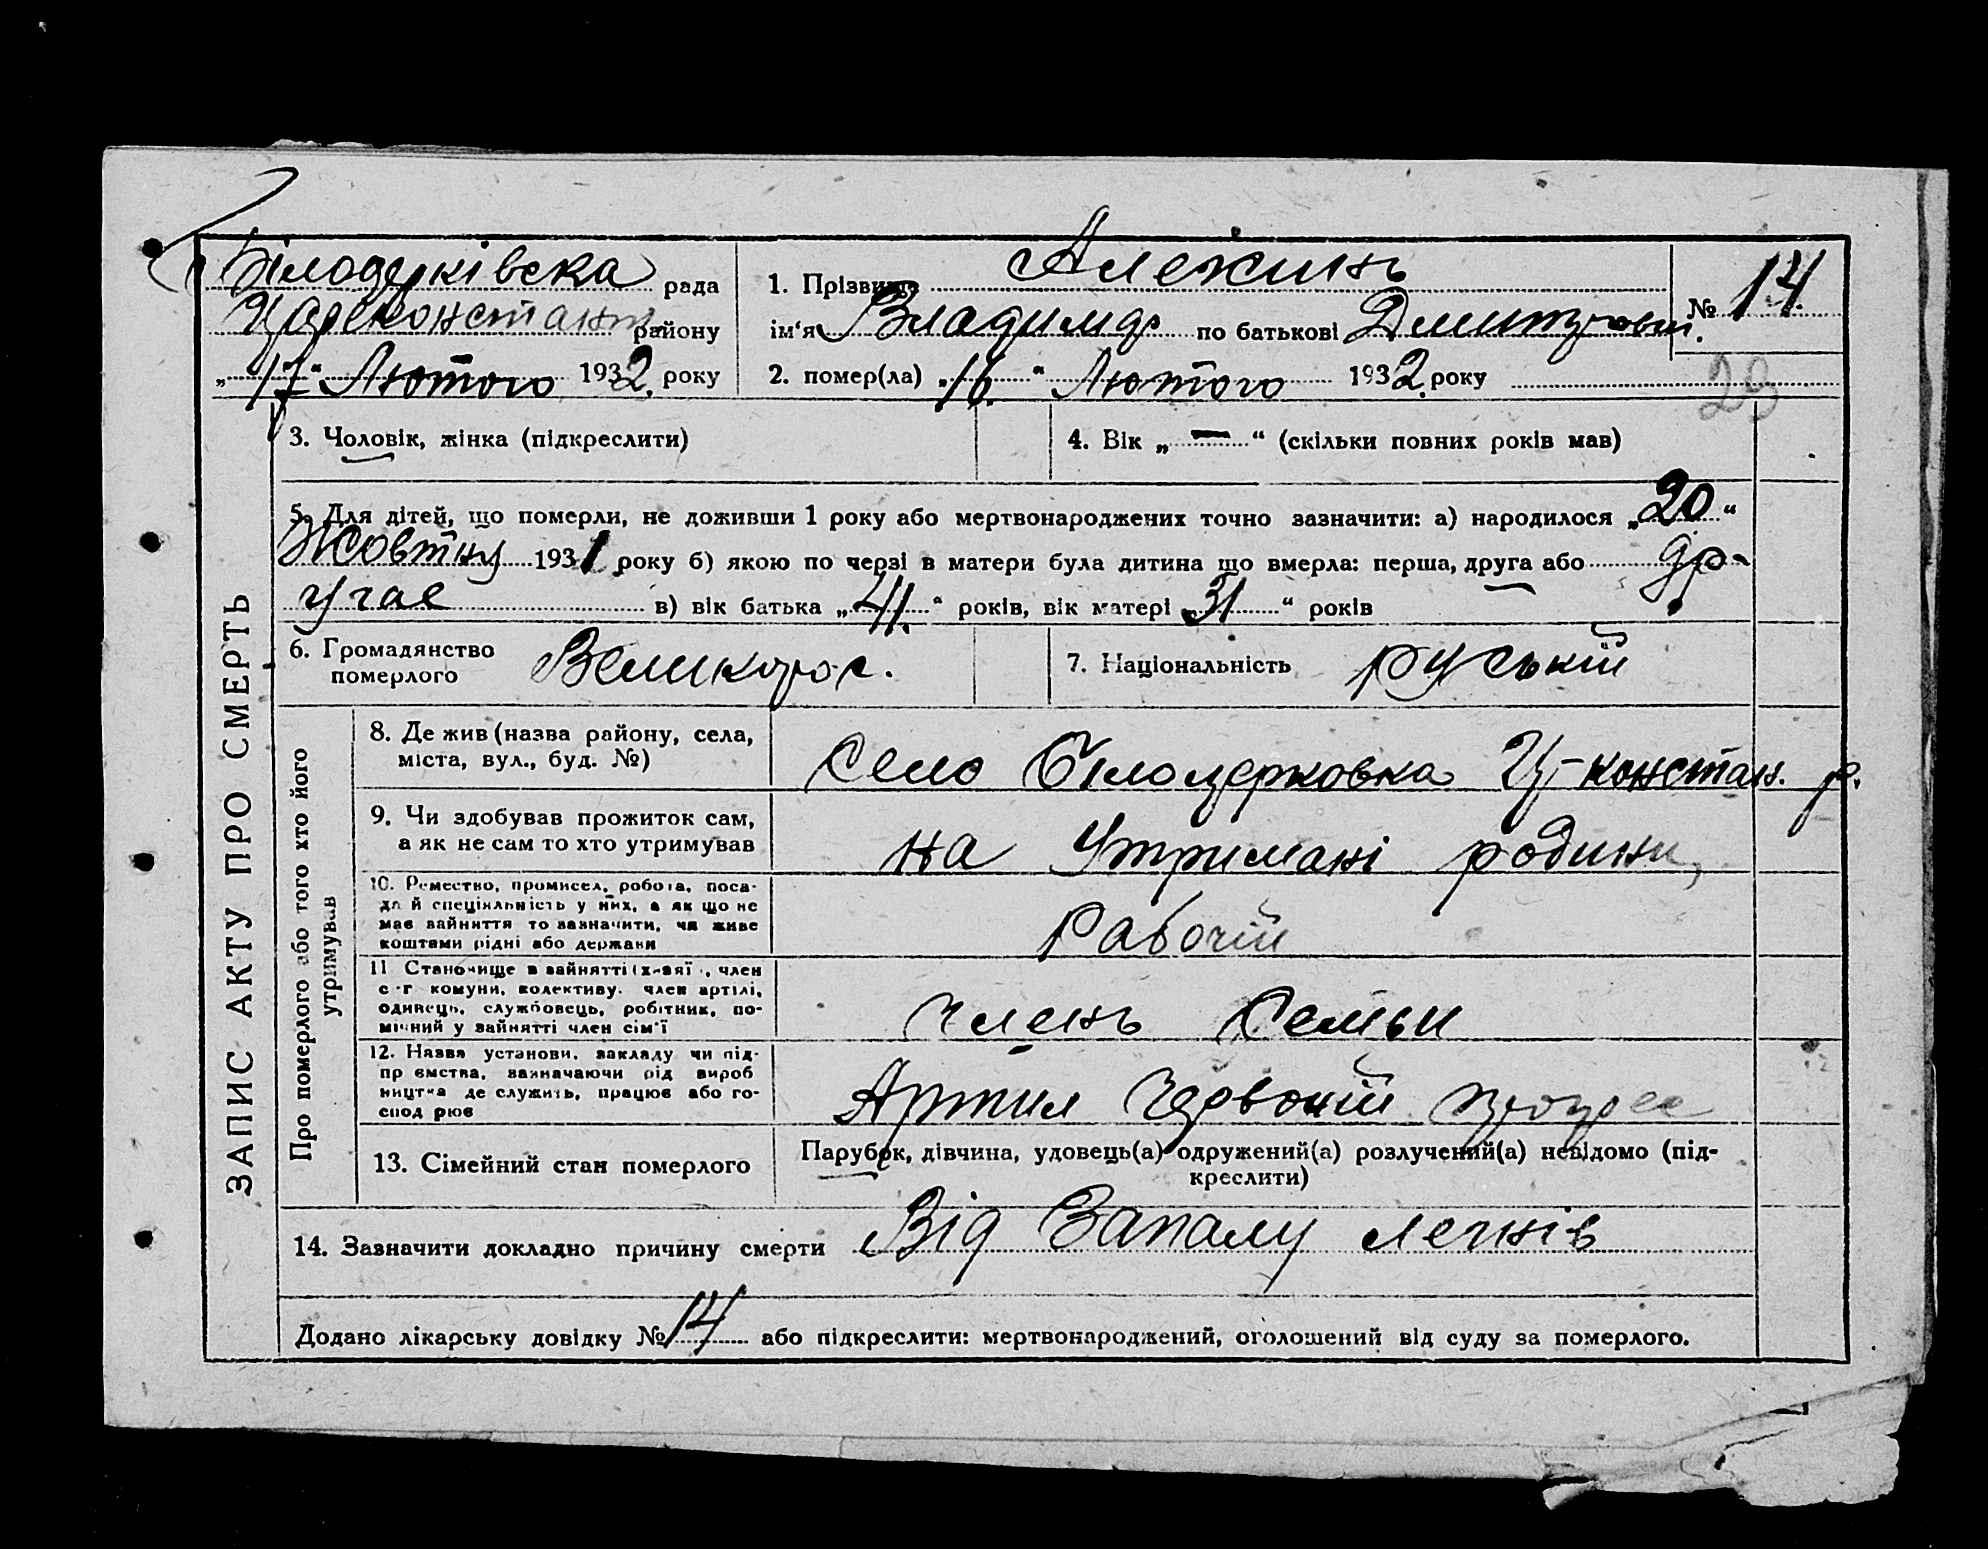 Білоцерківска рада
Цареконстант району
„17" Лютого 1932. року
1. Прізвище Алехинъ
ім'я Владимир по батькові Дмитрович.
№ 14
2. помер(ла) „16." Лютого 1932. року
29
3. Чоловік, жінка (підкреслити)
4. Вік „—" (скільки повних років мав)
5. Для дітей, що померли, не доживши 1 року або мертвонароджених точно зазначити: а) народилося „20"
Жовтну 1931 року б) якою по черзі в матери була дитина що вмерла: перша, друга або др-
угае в) вік батька „41." років, вік матері „31" років
6. Громадянство
померлого
Великорос.
7. Національність руський
ЗАПИС АКТУ ПРО СМЕРТЬ
Про померлого або того хто його
утримував
8. Де жив (назва району, села,
міста, вул., буд. №)
Село Білоцерковка Ц-констан. р.
9. Чи здобував прожиток сам,
а як не сам то хто утримував
на Утримані родини,
10. Ремество, промисел, робота, поса-
да й спеціяльність у них, а як що не
має зайняття то зазначити, чи живе
коштами рідні або держави
Рабочій
11 Становище в зайнятті (хазяї, член
с-г комуни, колективу. член артілі,
одинець, службовець, робітник, по-
мічний у зайнятті член сім'ї
членъ Семьи
12. Назва установи, закладу чи під-
приємства, зазначаючи рід вироб
ництва де служить, працює або го-
сподарює
Артил Червоний прогрес
13. Сімейний стан померлого
Парубок, дівчина, удовець(а) одружений(а) розлучений(а) невідомо (під-
креслити)
14. Зазначити докладно причину смерти Від Запалу легнів
Додано лікарську довідку № 14 або підкреслити: мертвонароджений, оголошений від суду за померлого.